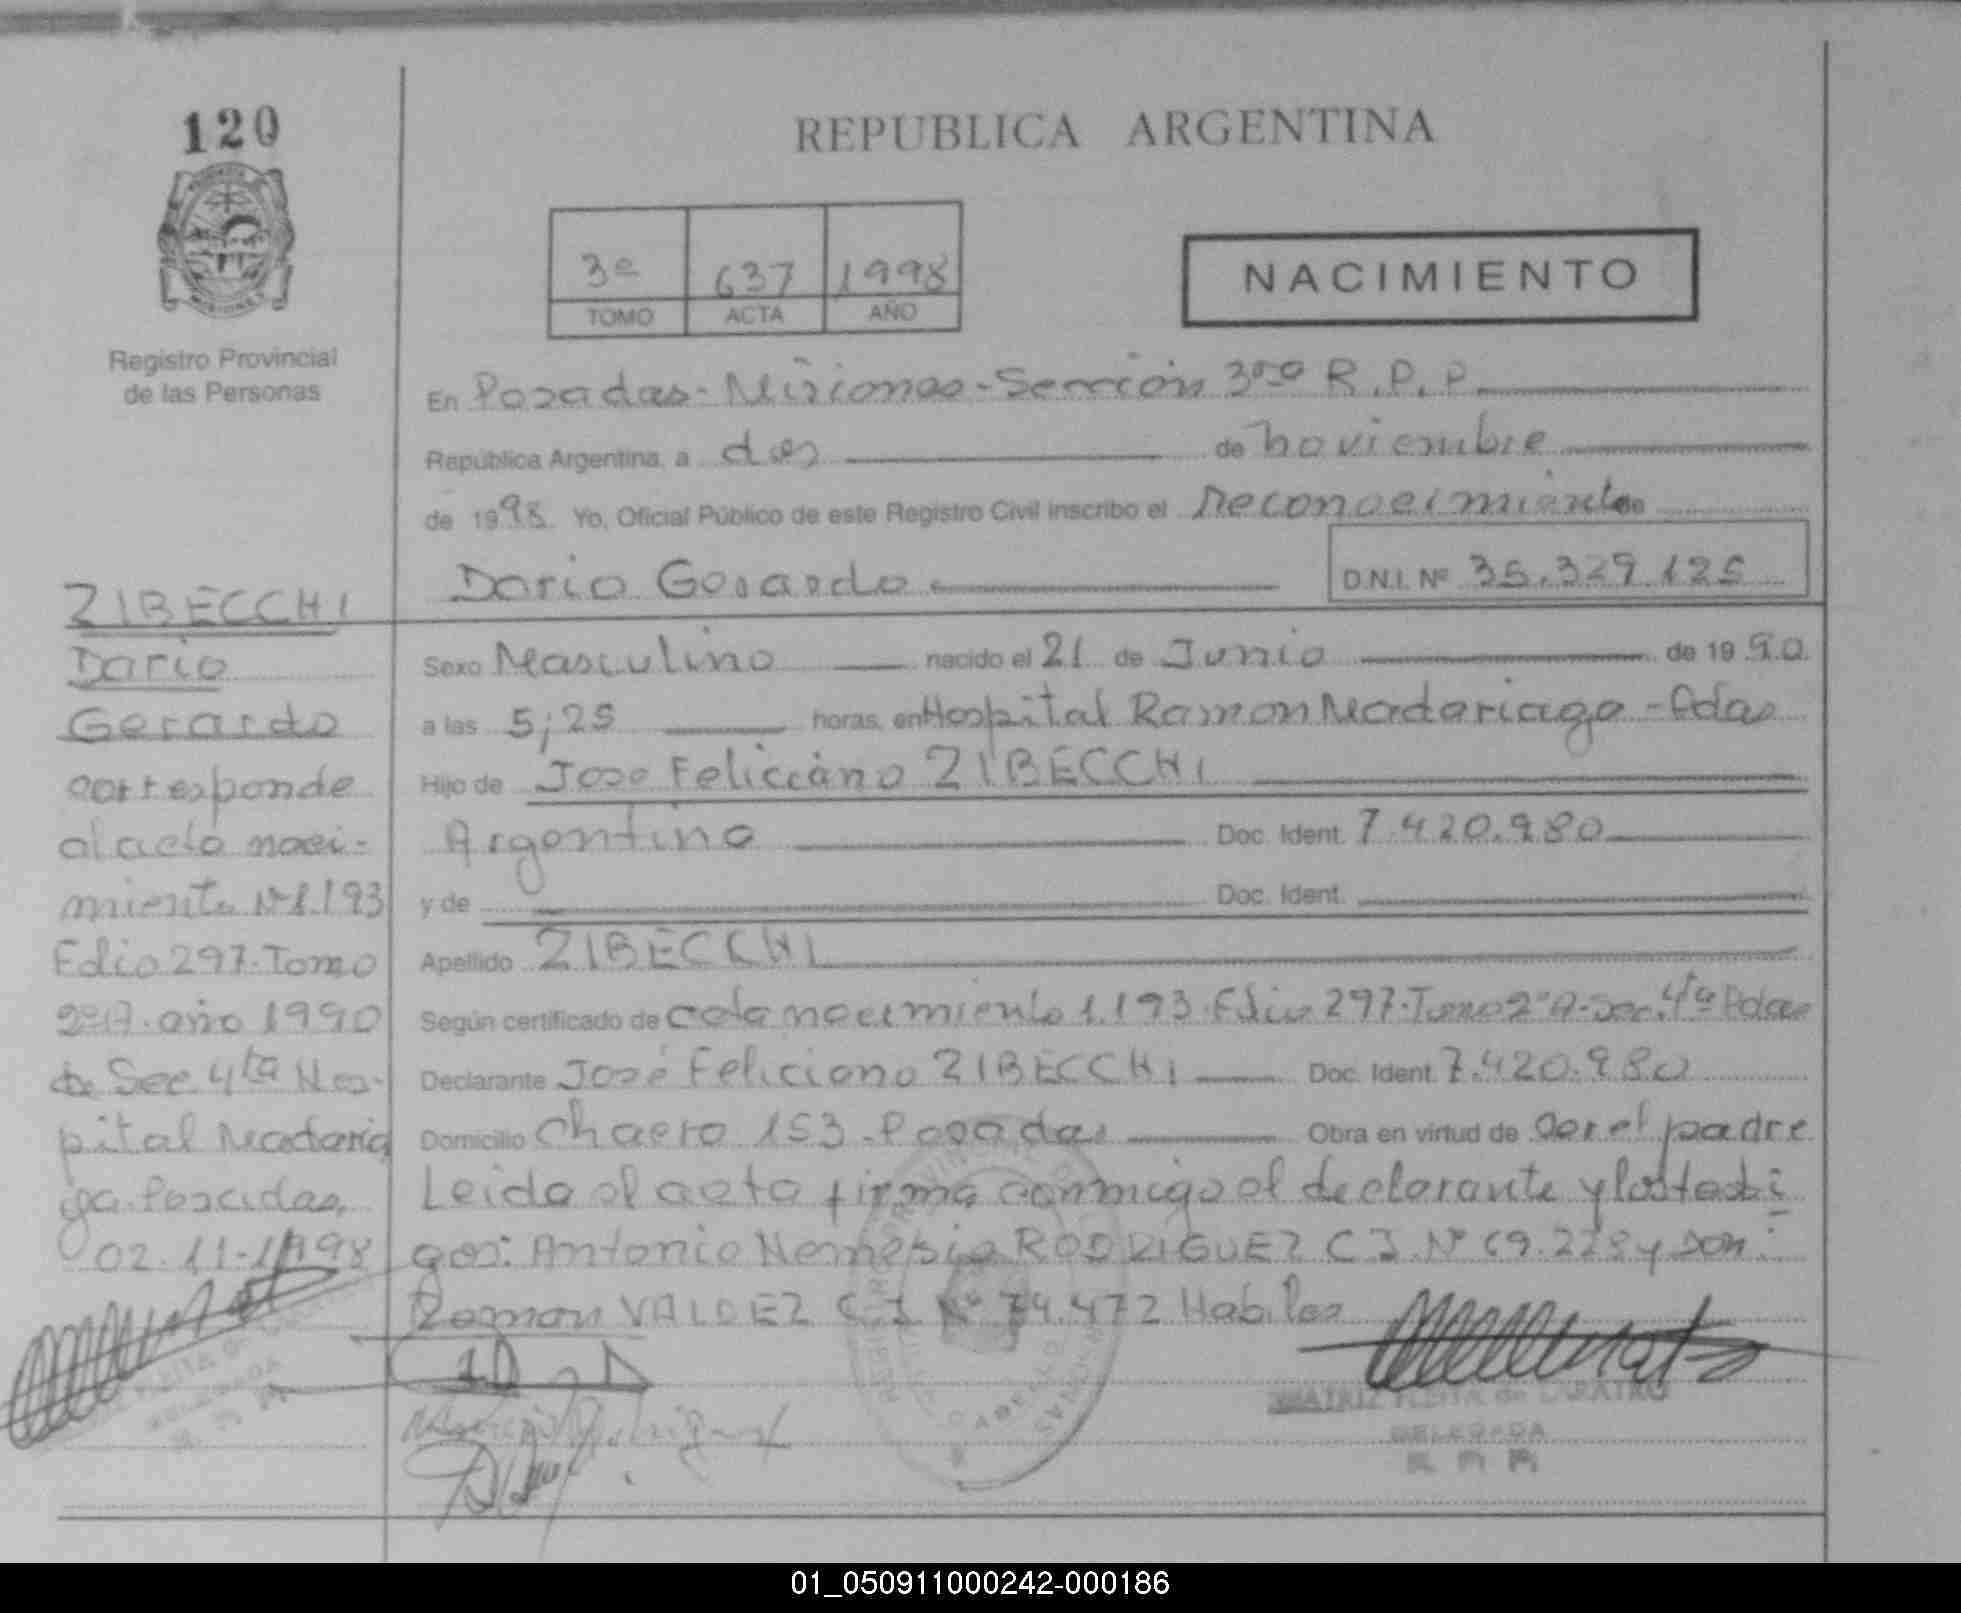 120
REPUBLICA ARGENTINA
3º 637 1998
TOMO ACTA AÑO
NACIMIENTO
Registro Provincial
de las Personas
En Posadas - Misiones - Sección 3ra R.P.P.
República Argentina, a dos de noviembre
de 1998. Yo, Oficial Público de este Registro Civil inscribo el Reconocimiento de
Dario Gerardo D.N.I. Nº 35.329.125
Sexo Masculino nacido el 21 de Junio de 1990
a las 5;25 horas, en Hospital Ramon Madariaga - Pdas
Hijo de Jose Feliciano ZIBECCHI
Argentino Doc. Ident. 7.420.980
y de Doc. Ident.
Apellido ZIBECCHI
Según certificado de acta nacimiento 1.193-Folio 297-Tomo 2ºA-Sec. 4ta Pdas
Declarante José Feliciano ZIBECCHI Doc. Ident. 7.420.980
Domicilio Chaco 153 - Posadas Obra en virtud de ser el padre
Leida el acta firma conmigo el declarante y los testi
gos: Antonio Nemesio RODRIGUEZ C I Nº 69.228 y son:
Ramon VALDEZ C I Nº 74.472 Habiles
ZIBECCHI
Dario
Gerardo
corresponde
al acta naci-
miento Nº 1.193
Folio 297-Tomo
2ºA-año 1990
de Sec. 4ta Hos-
pital Madaria
ga. Posadas,
02-11-1998
BEATRIZ FLEITA de LABATRO
DELEGADA
R. P. P.
DELEGADA
R. P. P.
01_050911000242-000186